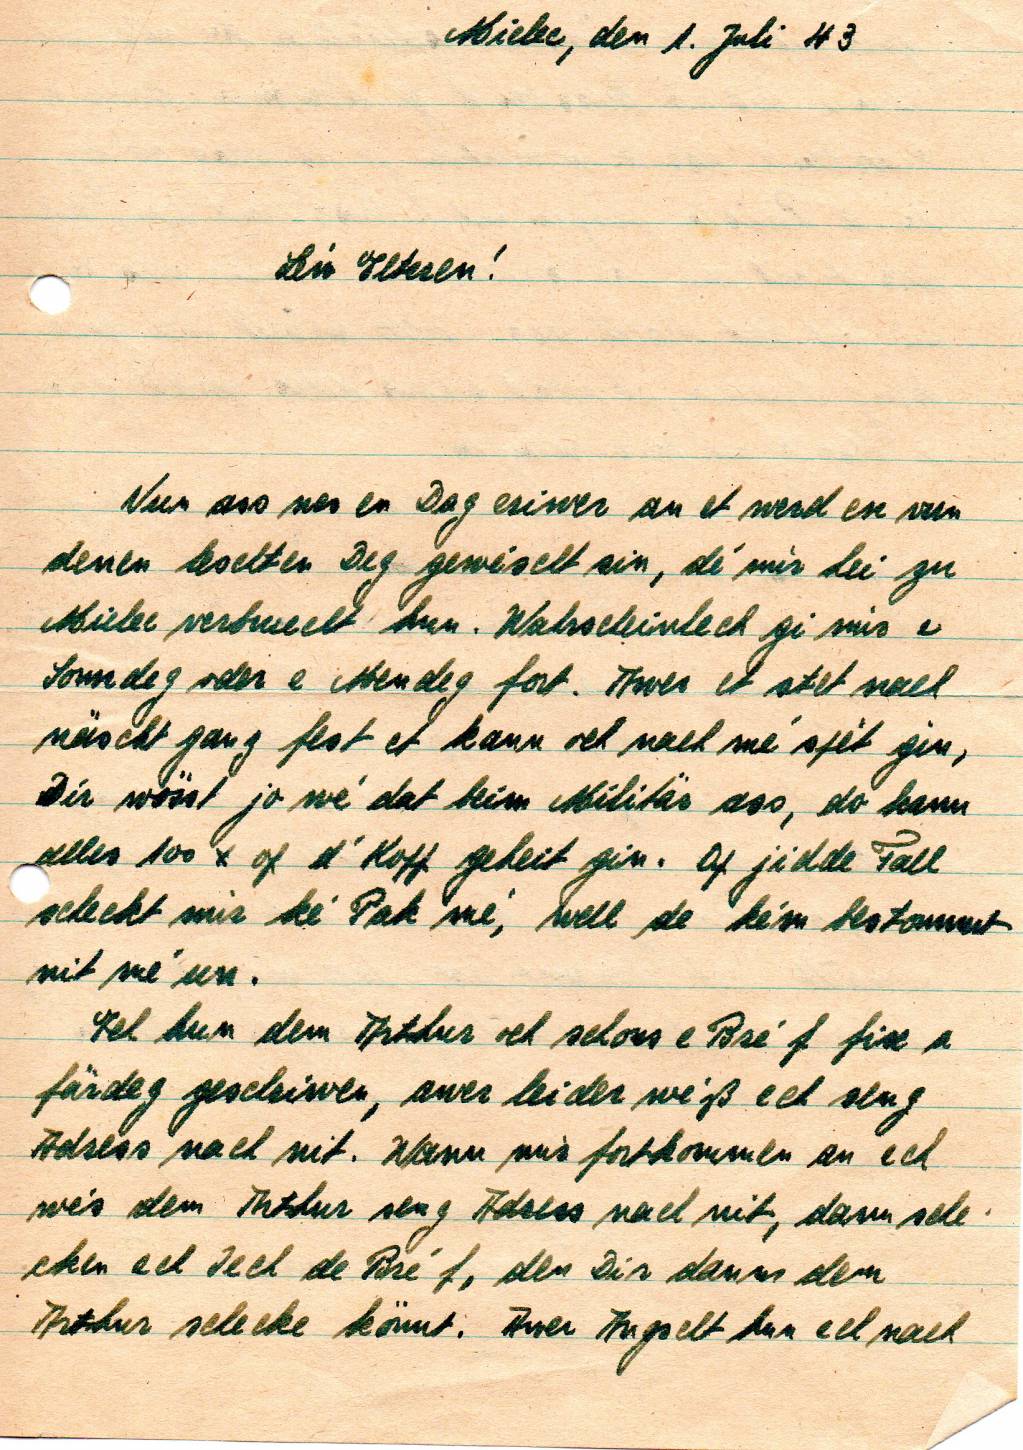 Mielec, den 1. Juli 43
Léw Elteren!
Nun ass nos en Dag eriwer an et werd en vun
denen leschten Deg gewiescht sin, dé mir hei zu
Mielec verbruecht hun. Wahrscheinlech gi mir e
Sonndeg oder e Mendeg fort. Awer et stet nach
näscht ganz fest et kann och nach mé spét gin,
Dir wösst jo wé dat beim Militär ass, do kann
alles 100 x op d' Kopp geheit gin. Op jidde Fall
scheckt mir ké Pak mé, well de kém bestommt
nit mé un.
Ech hun dem Arthur och schons e Bréf fix a
färdeg geschriwen, awer leider wéiß ech seng
Adress nach nit. Wann mir fortkommen an ech
wés dem Arthur seng Adress nach nit, dann sche
cken ech Iech de Bréf, den Dir dann dem
Arthur schecke könnt. Awer Angscht hun ech nach